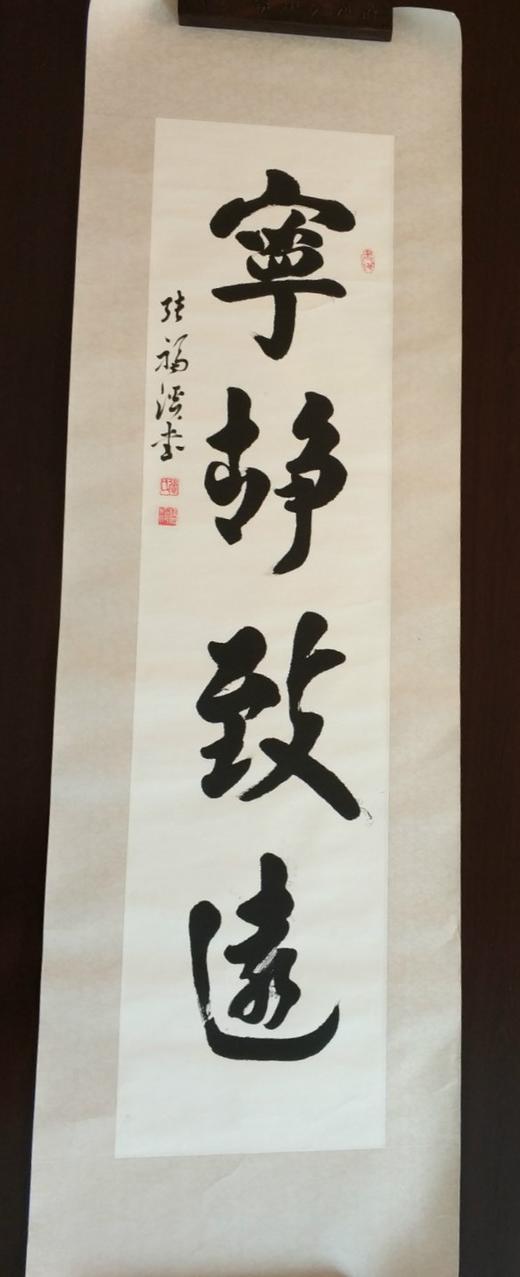 寧靜致遠
張福滨書